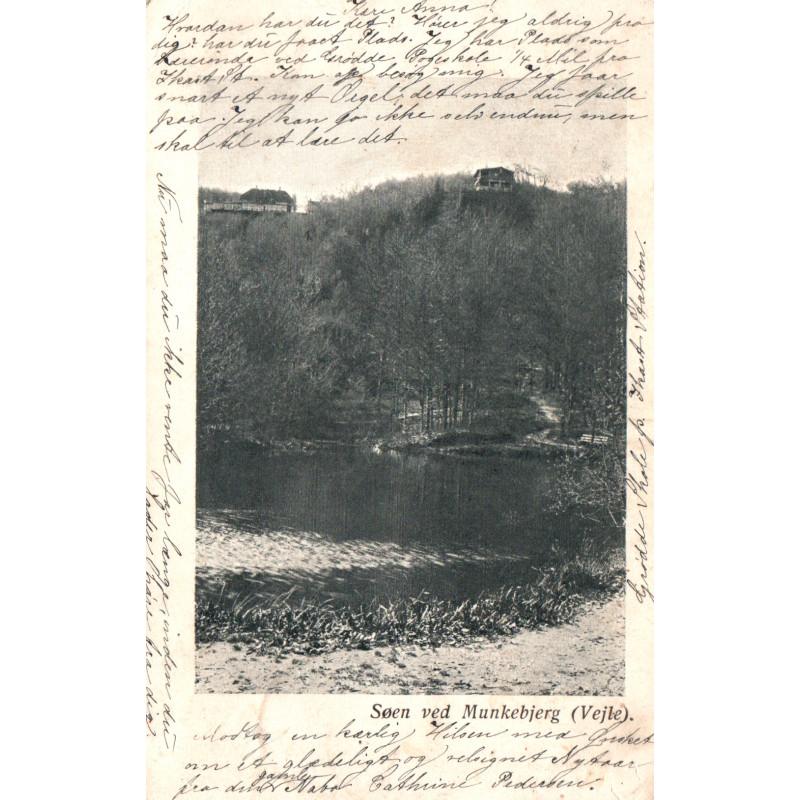 Kære Anna!
Hvordan har du det? Hører jeg aldrig fra
dig? har du faaet Plads. Jeg har Plads som
Lærerinde ved Grødde Pogeskole 1/4 Mil fra
Ikast St. Kom og besøg mig. Jeg faar
snart et nyt Orgel, det maa du spille
paa. Jeg kan jo ikke selv endnu, men
skal til at lære det.
Nu maa du ikke vente for længe, inden du
lader høre fra dig
Grødde Skole pr. Ikast Station.
Søen ved Munkebjerg (Vejle).
Modtag en kærlig Hilsen med Ønsket
om et glædeligt og velsignet Nytaar
fra din gamle Nabo Cathrine Pedersen.